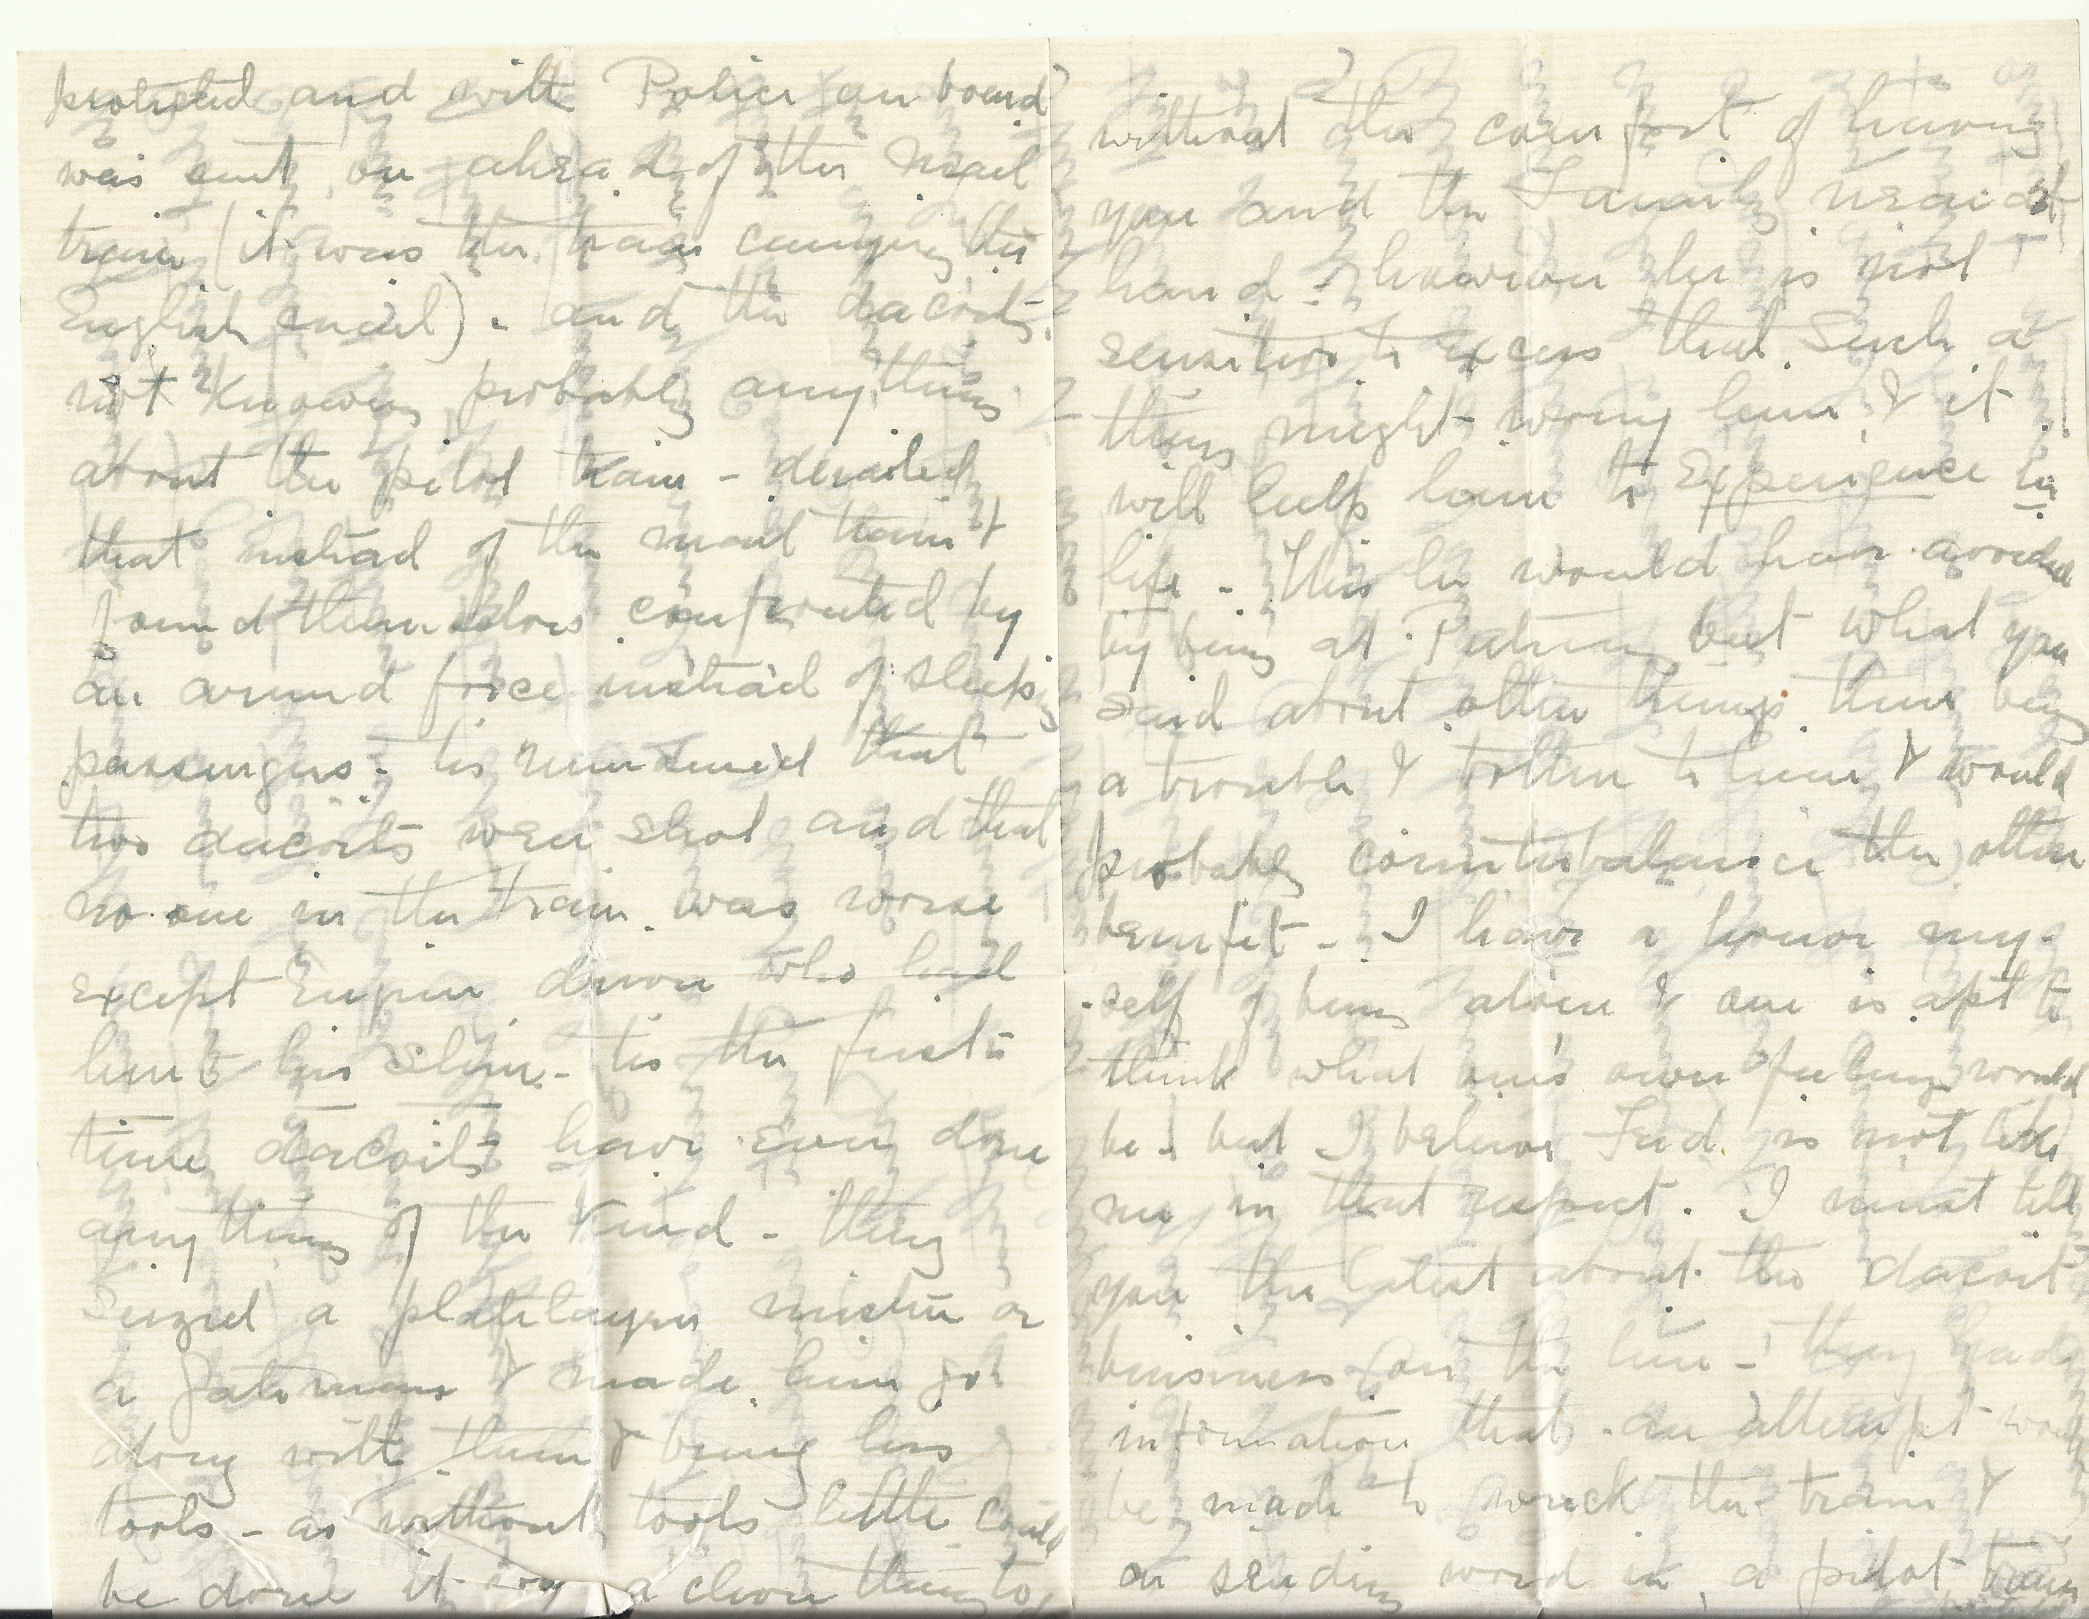 protected and with Police on board
was sent on ahead of the mail
train (it was the train carrying the
English mail). and the dacoits
not knowing probably anything
about the pilot train - derailed
that instead of the mail train &
found themselves confronted by
an armed force instead of sleeping
passengers. tis rumoured that
two dacoits were shot and that
no one in the train was worse
except Engine driver who had
hurt his shin. tis the first
time dacoits have ever done
anything of the kind - they
seized a platelayer mistri or
a gateman & made him go
along with them & bring his
tools - as without tools little could
be done it was a clever thing to
without the comfort of having
you and the Family near at
hand - however he is not
sensitive to excess that such a
thing might wrong him & it
will help him to Experience in
life - This he would have avoided
by being at but what you
said about other things there being
a trouble & bother to him & would
probably counterbalance the other
benefit - I have a horror my-
self of being alone & one is apt to
think what one's own feelings would
be - but I believe Fred is not like
me in that respect. I must tell
you the latest about the dacoit
business on the line - they had
information that an attempt would
be made to wreck the train &
on sending word in, a pilot train